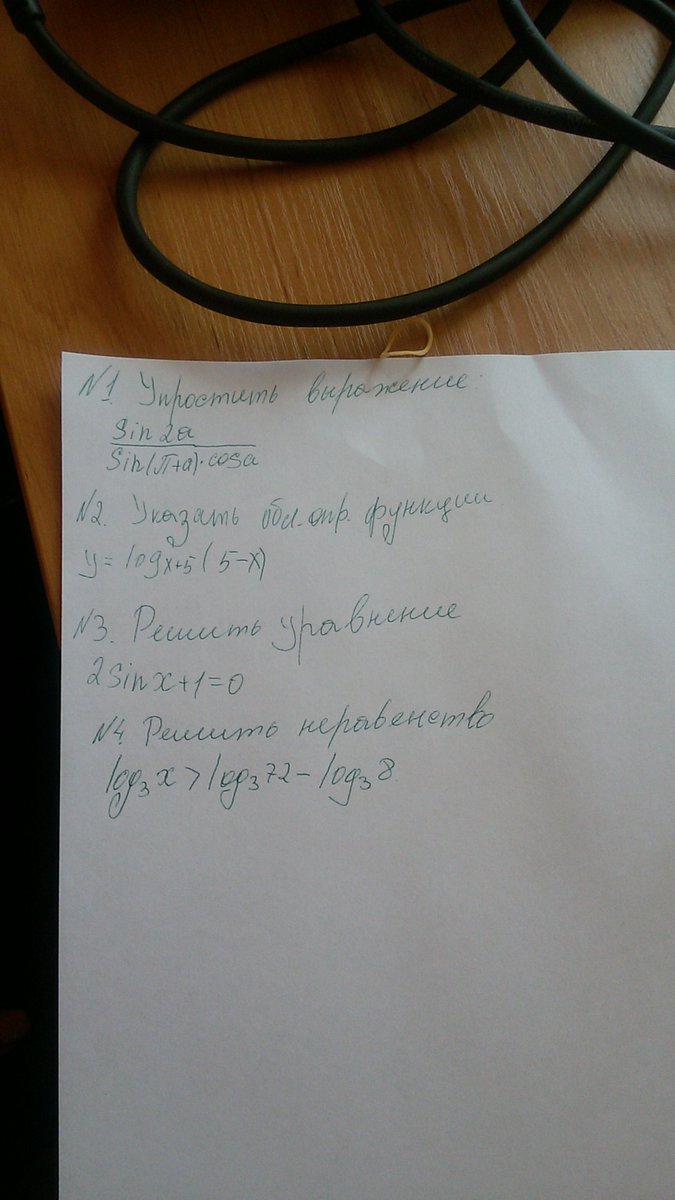 №1. Упростить выражение:
sin2a
sin(π+a)·cosa
№2. Указать обл. опр. функции
y = log x+5 (5-x)
№3. Решить уравнение
2sinx+1=0
№4. Решить неравенство
log₃x > log₃72 - log₃8